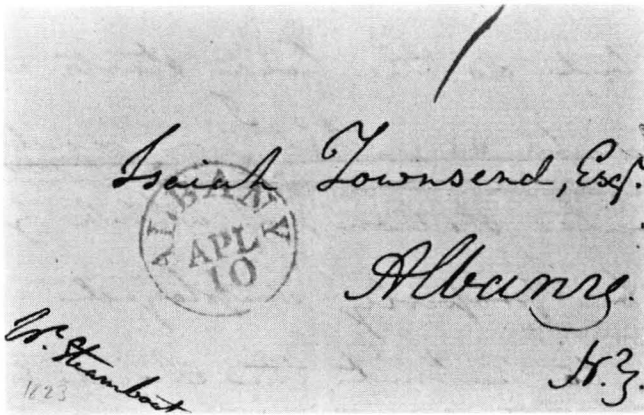 Isaiah Townsend, Esqr.
ALBANY
APL
10
Albany.
N.Y.
Steamboat
1823